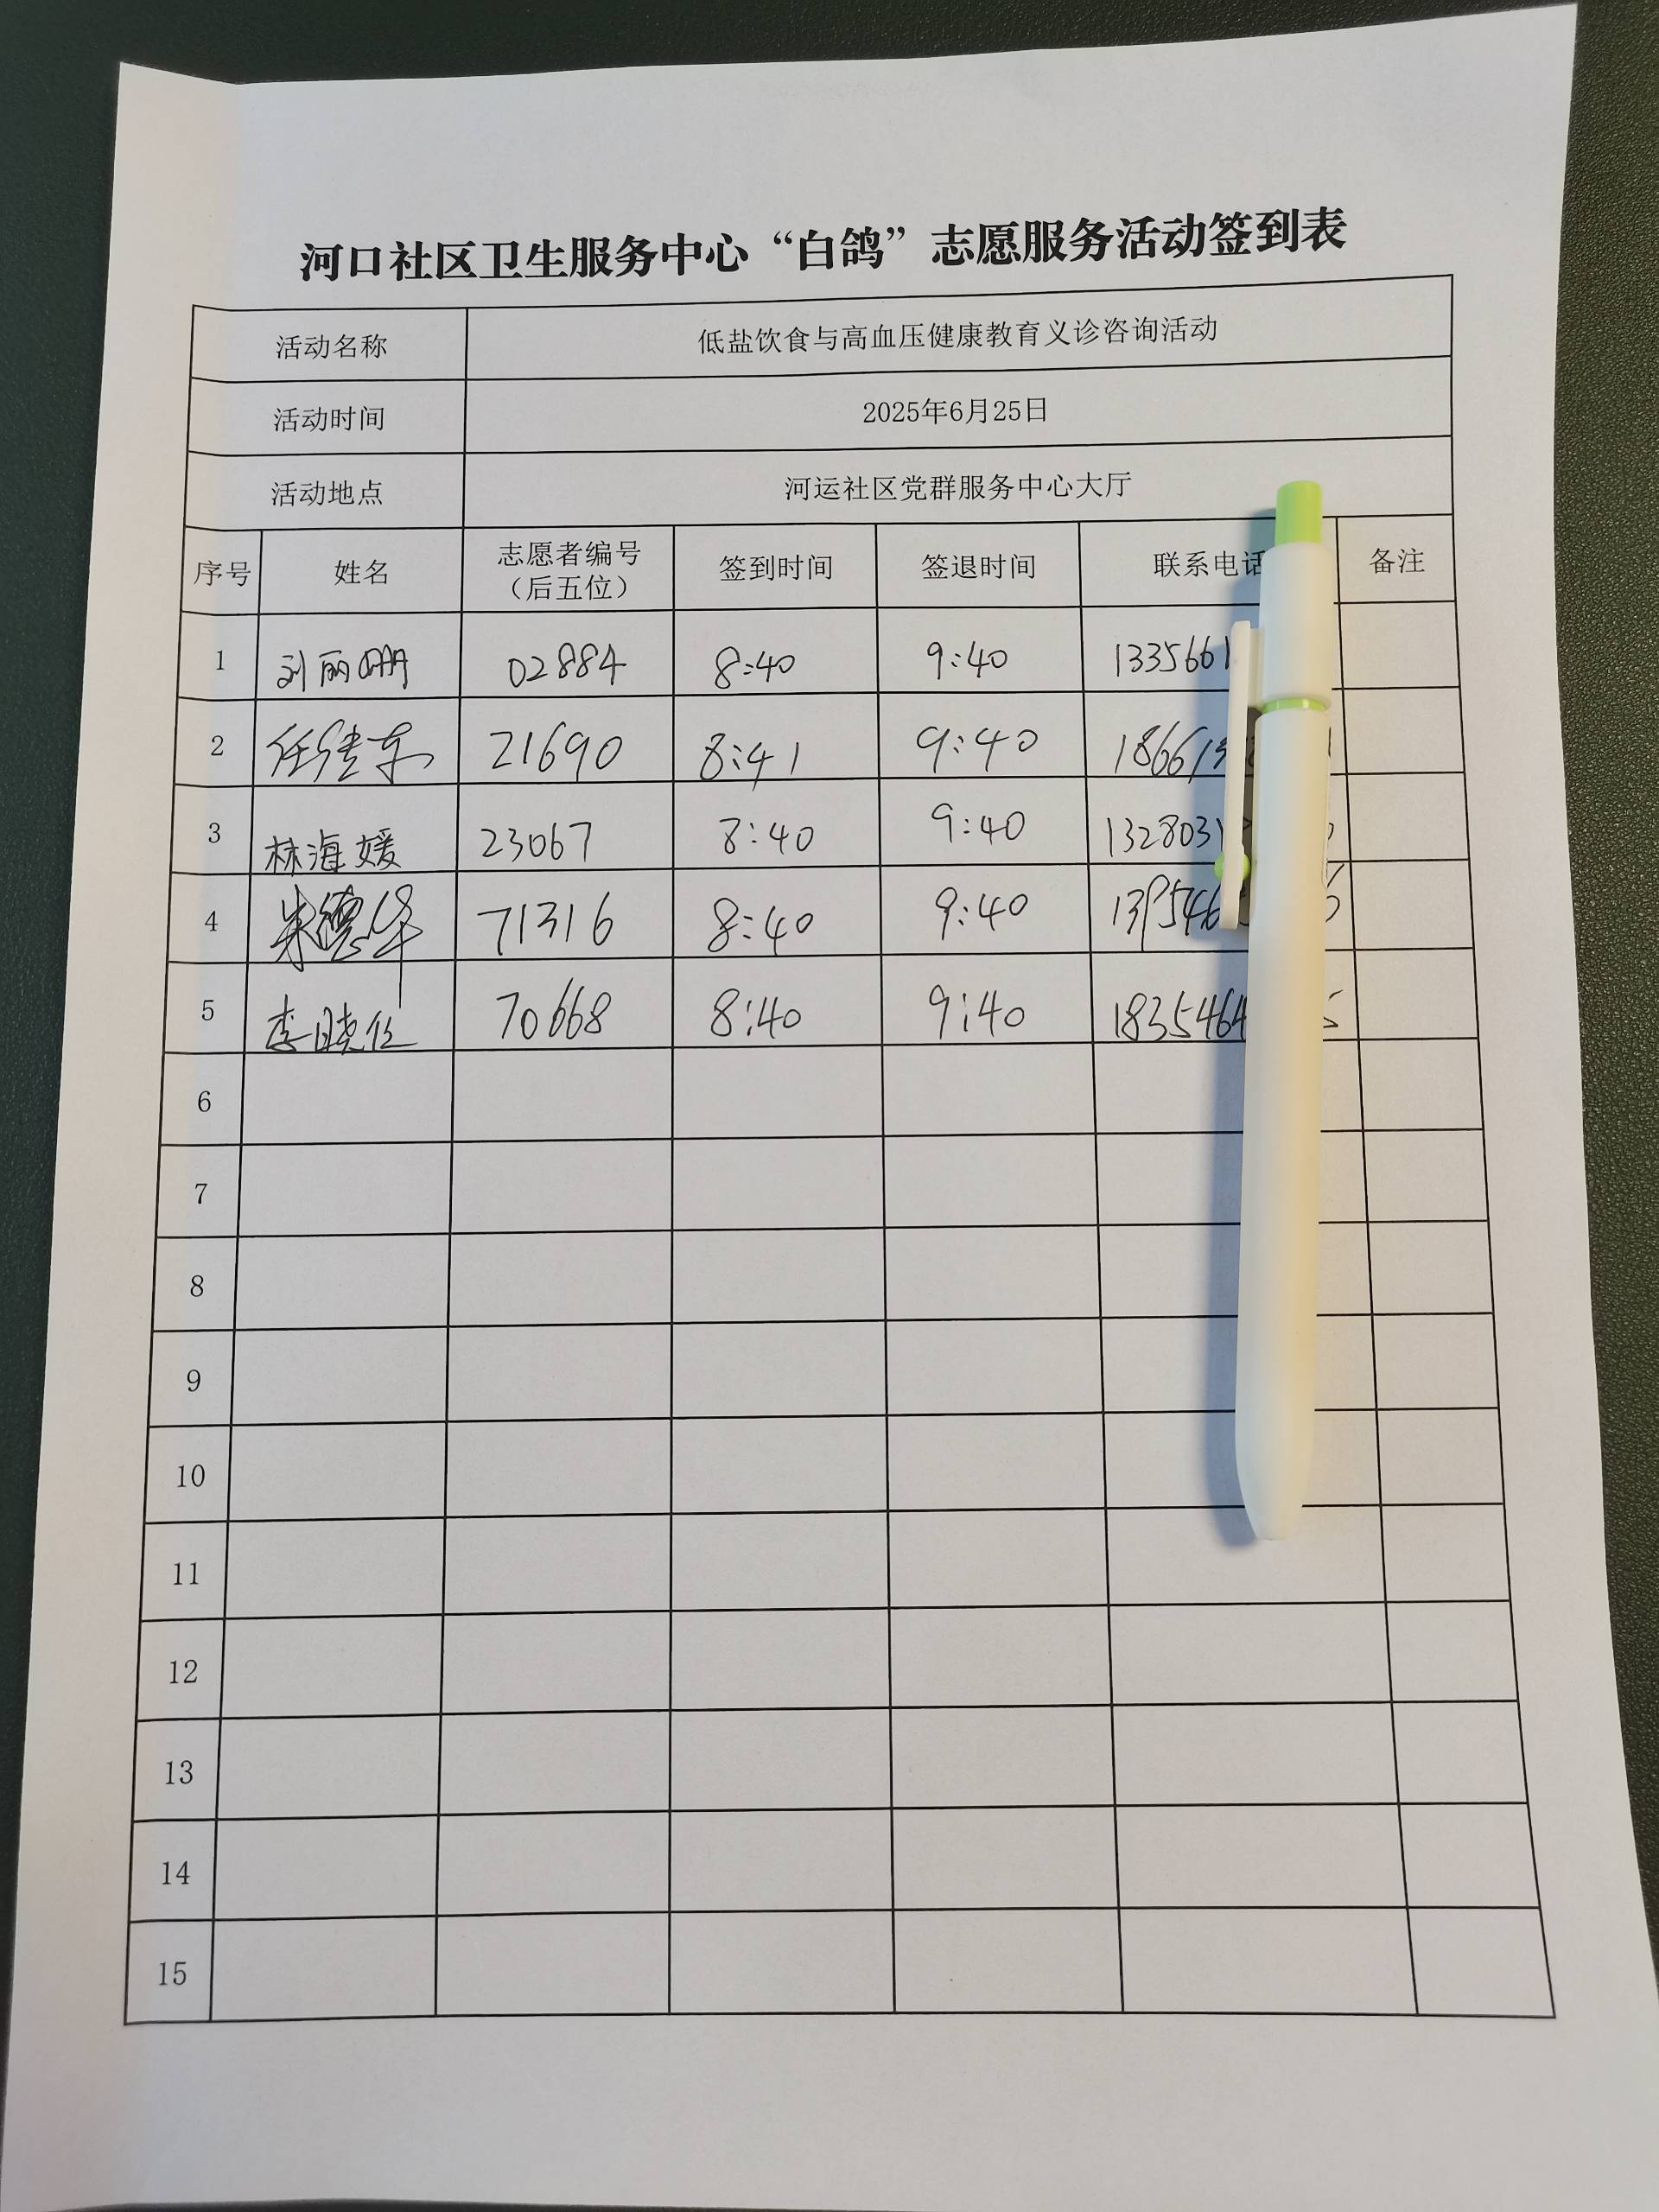 河口社区卫生服务中心“白鸽”志愿服务活动签到表
活动名称 低盐饮食与高血压健康教育义诊咨询活动
活动时间 2025年6月25日
活动地点 河运社区党群服务中心大厅
序号 姓名 志愿者编号（后五位） 签到时间 签退时间 联系电话 备注
1 刘丽珊 02884 8:40 9:40 1335661
2 21690 8:41 9:40 18661
3 林海媛 23067 8:40 9:40 1328031
4 朱德华 71316 8:40 9:40 139546
5 李晓 70668 8:40 9:40 1835464
6
7
8
9
10
11
12
13
14
15